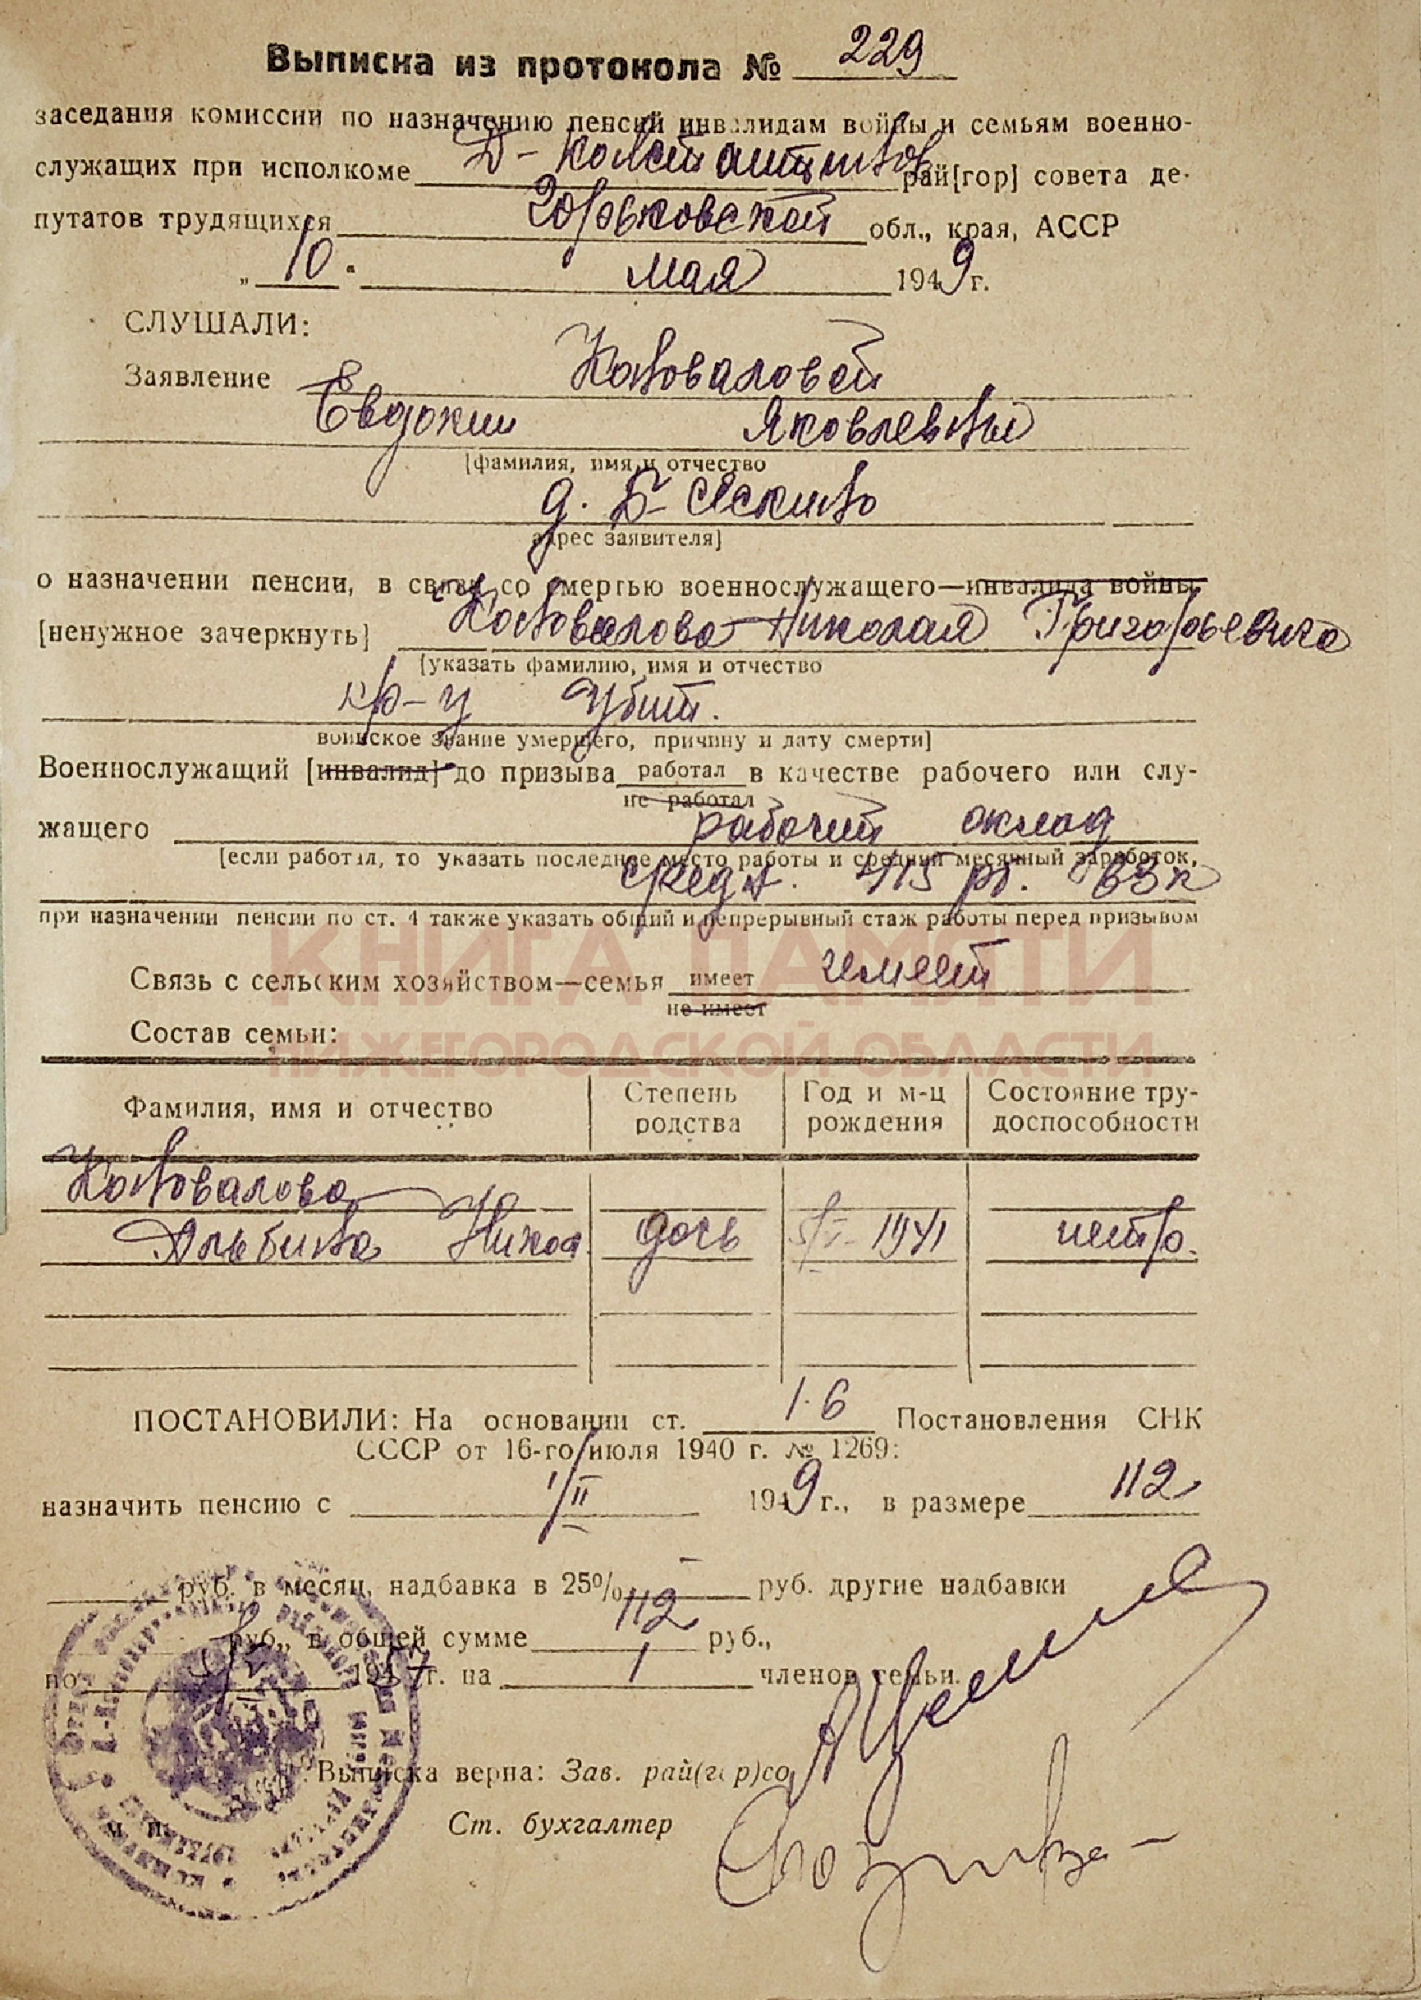 Выписка из протокола № 229
заседания комиссии по назначению пенсий инвалидам войны и семьям военно-
служащих при исполкоме Д-Константинов рай[гор] совета де-
путатов трудящихся Горьковской обл., края, АССР
„ 10 “ мая 1949 г.
СЛУШАЛИ:
Заявление Коноваловой
Евдокии Яковлевны
[фамилия, имя и отчество
д. Б-Сескино
адрес заявителя]
о назначении пенсии, в связи со смертью военнослужащего—инвалида войны
[ненужное зачеркнуть] Коновалова Николая Григорьевича
[указать фамилию, имя и отчество
кр-ц убит.
воинское звание умершего, причину и дату смерти]
Военнослужащий [инвалид] до призыва работал в качестве рабочего или слу-
не работал
жащего рабочий оклад
[если работал, то указать последнее место работы и средний месячный заработок,
средн. 415 рб.
при назначении пенсии по ст. 4 также указать общий и непрерывный стаж работы перед призывом
КНИГА ПАМЯТИ
Связь с сельским хозяйством—семья имеет имеет
не имеет
НИЖЕГОРОДСКОЙ ОБЛАСТИ
Состав семьи:
Фамилия, имя и отчество Степень родства Год и м-ц рождения Состояние тру-доспособности
Коновалова
Альбина Никол. дочь 1941 нетр.
ПОСТАНОВИЛИ: На основании ст. 1.6 Постановления СНК
СССР от 16-го июля 1940 г. № 1269:
назначить пенсию с 1/II 1949 г., в размере 112
руб. в месяц, надбавка в 25% — руб. другие надбавки
руб., в общей сумме 112 руб.,
по 1957 г. на 1 членов семьи.
Выписка верна: Зав. рай(гор)со
Ст. бухгалтер
М. П.